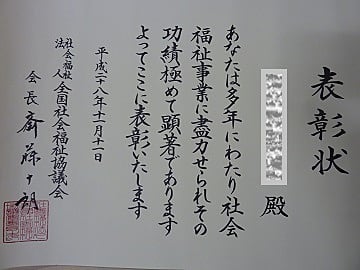 表彰状
殿
あなたは多年にわたり社会
福祉事業に盡力せられその
功績極めて顕著であります
よってここに表彰いたします
平成二十八年十一月十一日
社会福祉法人 全国社会福祉協議会
会長 斎藤十朗